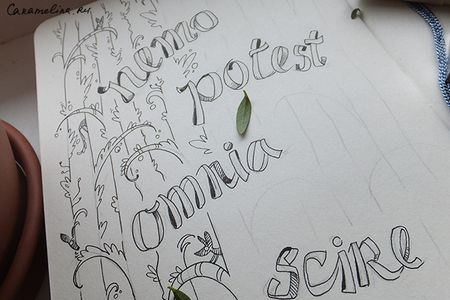 Caramelina.Ru
nemo
potest
omnia
scire